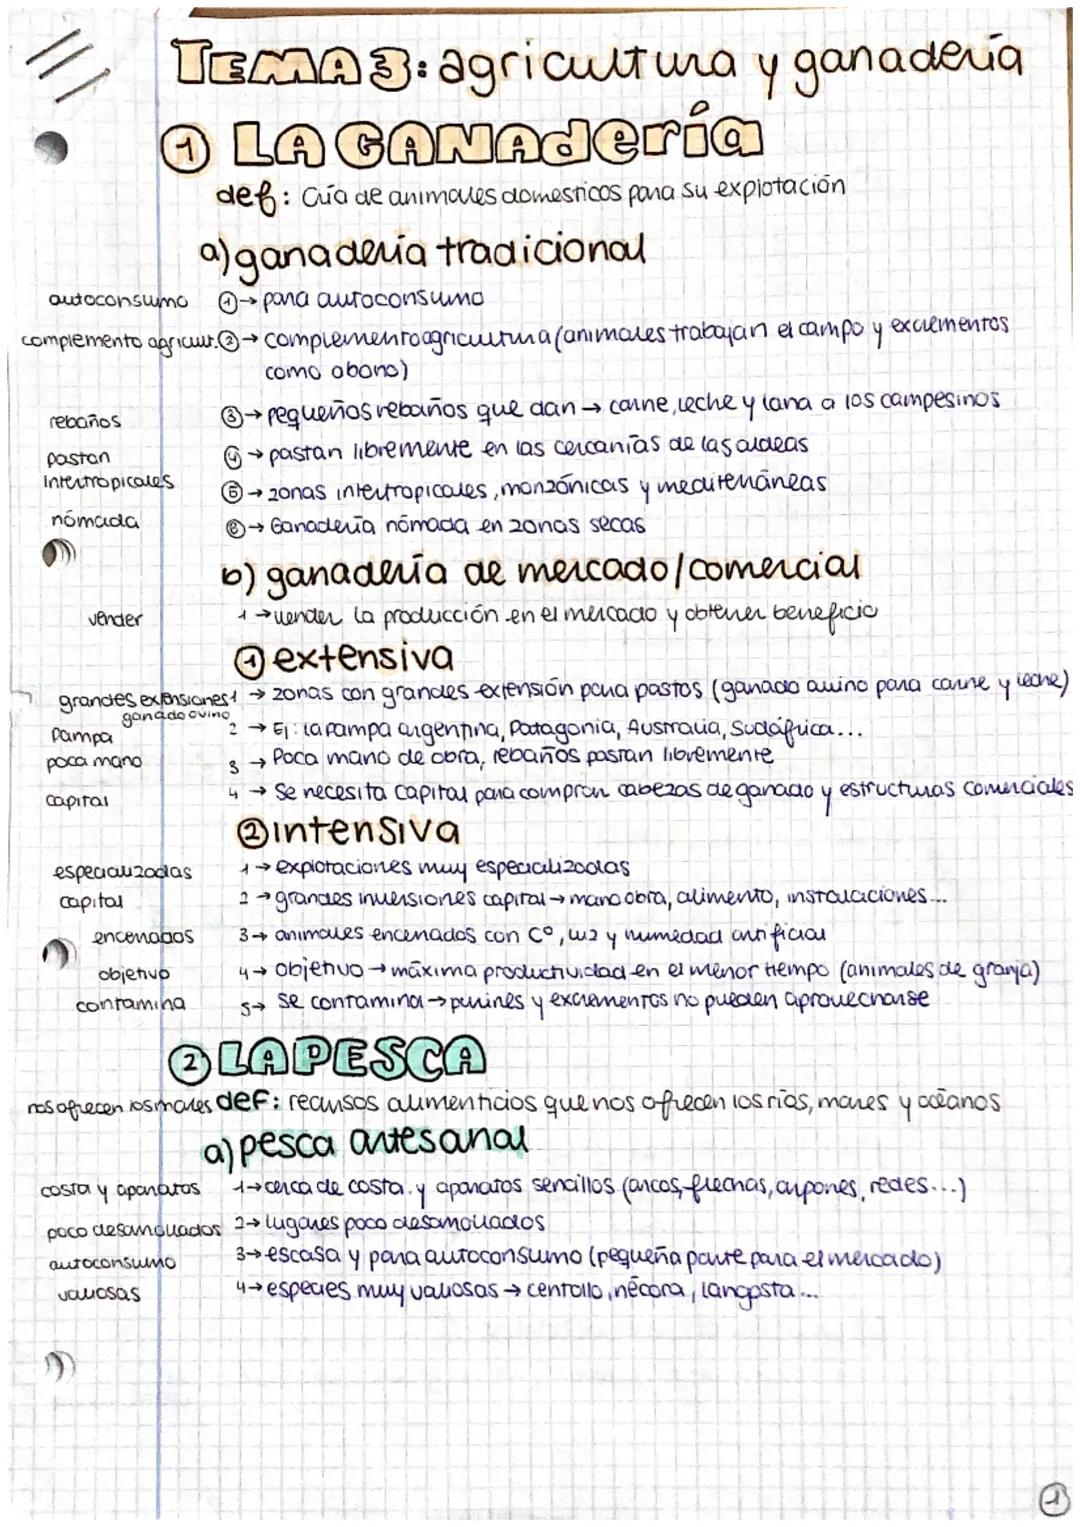 TEMA 3: agricultura y ganadería
1 LA GANAdería
def: Cría de animales domesticos para su explotación
a) ganadería tradicional
autoconsumo 1→ para autoconsumo
complemento agricult. 2→ complemento agricultura (animales trabajan el campo y excrementos
como abono)
rebaños 3→ pequeños rebaños que dan → carne, leche y lana a los campesinos
pastan 4→ pastan libremente en las cercanías de las aldeas
intertropicales 5→ zonas intertropicales, monzónicas y mediterráneas
nómada 6→ Ganadería nómada en zonas secas
b) ganadería de mercado/comercial
vender 1→ vender la producción en el mercado y obtener beneficio
1 extensiva
grandes extensiones 1 → zonas con grandes extensión para pastos (ganado ovino para carne y leche)
ganado ovino
Pampa 2 → Ej: la pampa argentina, Patagonia, Australia, Sudáfrica...
poca mano 3 → Poca mano de obra, rebaños pastan libremente
capital 4 → Se necesita capital para comprar cabezas de ganado y estructuras comerciales
2 intensiva
especializadas 1→ explotaciones muy especializadas
capital 2→ grandes inversiones capital → mano obra, alimento, instalaciones...
encerrados 3→ animales encerrados con Cº, luz y humedad artificial
objetivo 4→ objetivo → máxima productividad en el menor tiempo (animales de granja)
contamina 5→ Se contamina → purines y excrementos no pueden aprovecharse
2 LA PESCA
nos ofrecen los mares def: recursos alimenticios que nos ofrecen los ríos, mares y océanos
a) pesca artesanal
costa y aparatos 1→ cerca de costa y aparatos sencillos (arcos, flechas, arpones, redes...)
poco desarrollados 2→ lugares poco desarrollados
autoconsumo 3→ escasa y para autoconsumo (pequeña parte para el mercado)
valiosas 4→ especies muy valiosas → centollo, nécora, langosta...
1